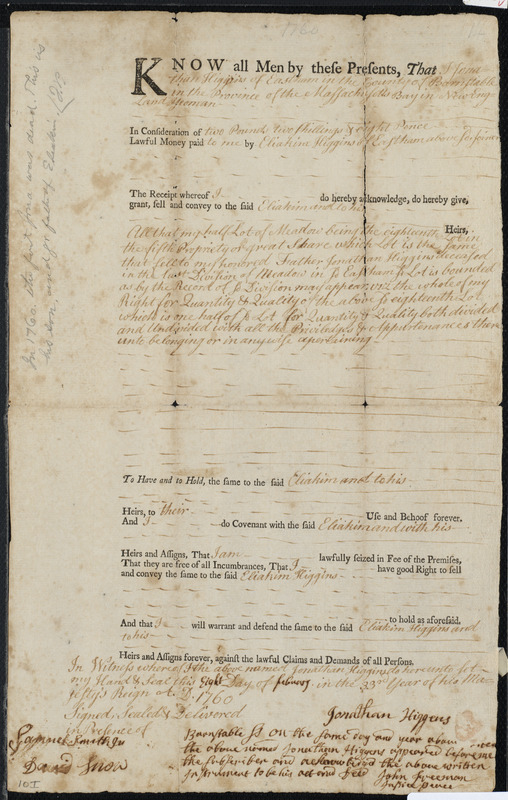 1760
KNOW all Men by these Presents, That I Jona
than Higgins of Eastham in the County of Barnstable
in the Province of the Massachusetts Bay in New Eng
land Yeoman
In Consideration of two Pounds two shillings & eight Pence
Lawful Money paid to me by Eliakim Higgins of Eastham above
The Receipt whereof I do hereby acknowledge, do hereby give,
grant, sell and convey to the said Eliakim and to his
Heirs,
All that my half Lot of Meadow being the eighteenth Lot in
the fifth Propriety or great Share which Lot is the Same
that fell to my honored Father Jonathan Higgins deceased
in the last Division of Meadow in sd Eastham sd Lot is bounded
as by the Record of sd Division may appear viz the whole of my
Right for Quantity & Quality of the above sd eighteenth Lot
which is one half of sd Lot for Quantity & Quality both divided
and Undivided with all the Priviledges & Appurtenances there
unto belonging or in any wise apertaining
To Have and to Hold, the same to the said Eliakim and to his
Heirs, to their Use and Behoof forever.
And I do Covenant with the said Eliakim and with his
Heirs and Assigns, That I am lawfully seized in Fee of the Premises,
That they are free of all Incumbrances, That I have good Right to sell
and convey the same to the said Eliakim Higgins
to hold as aforesaid.
And that I will warrant and defend the same to the said Eliakim Higgins and
to his
Heirs and Assigns forever, against the lawful Claims and Demands of all Persons.
In Witness whereof I the above named Jonathan Higgins hereunto set
my Hand & Seal this Eight Day of february in the 33rd Year of his Ma
jesty's Reign A:D: 1760
Signed, Sealed & Delivered
in Presence of
Jonathan Higgens
Samuel Smith Jr
David Snow
Barnstable SS on the same day and year above
the above named Jonathann Higgens appeared before me
the subscriber and acknowledged the above written
Instrument to be his act and deed
John Freeman
Justice peace
In 1760 the first Jona was dead. This is
his son and gr. father of Eliakim
10I